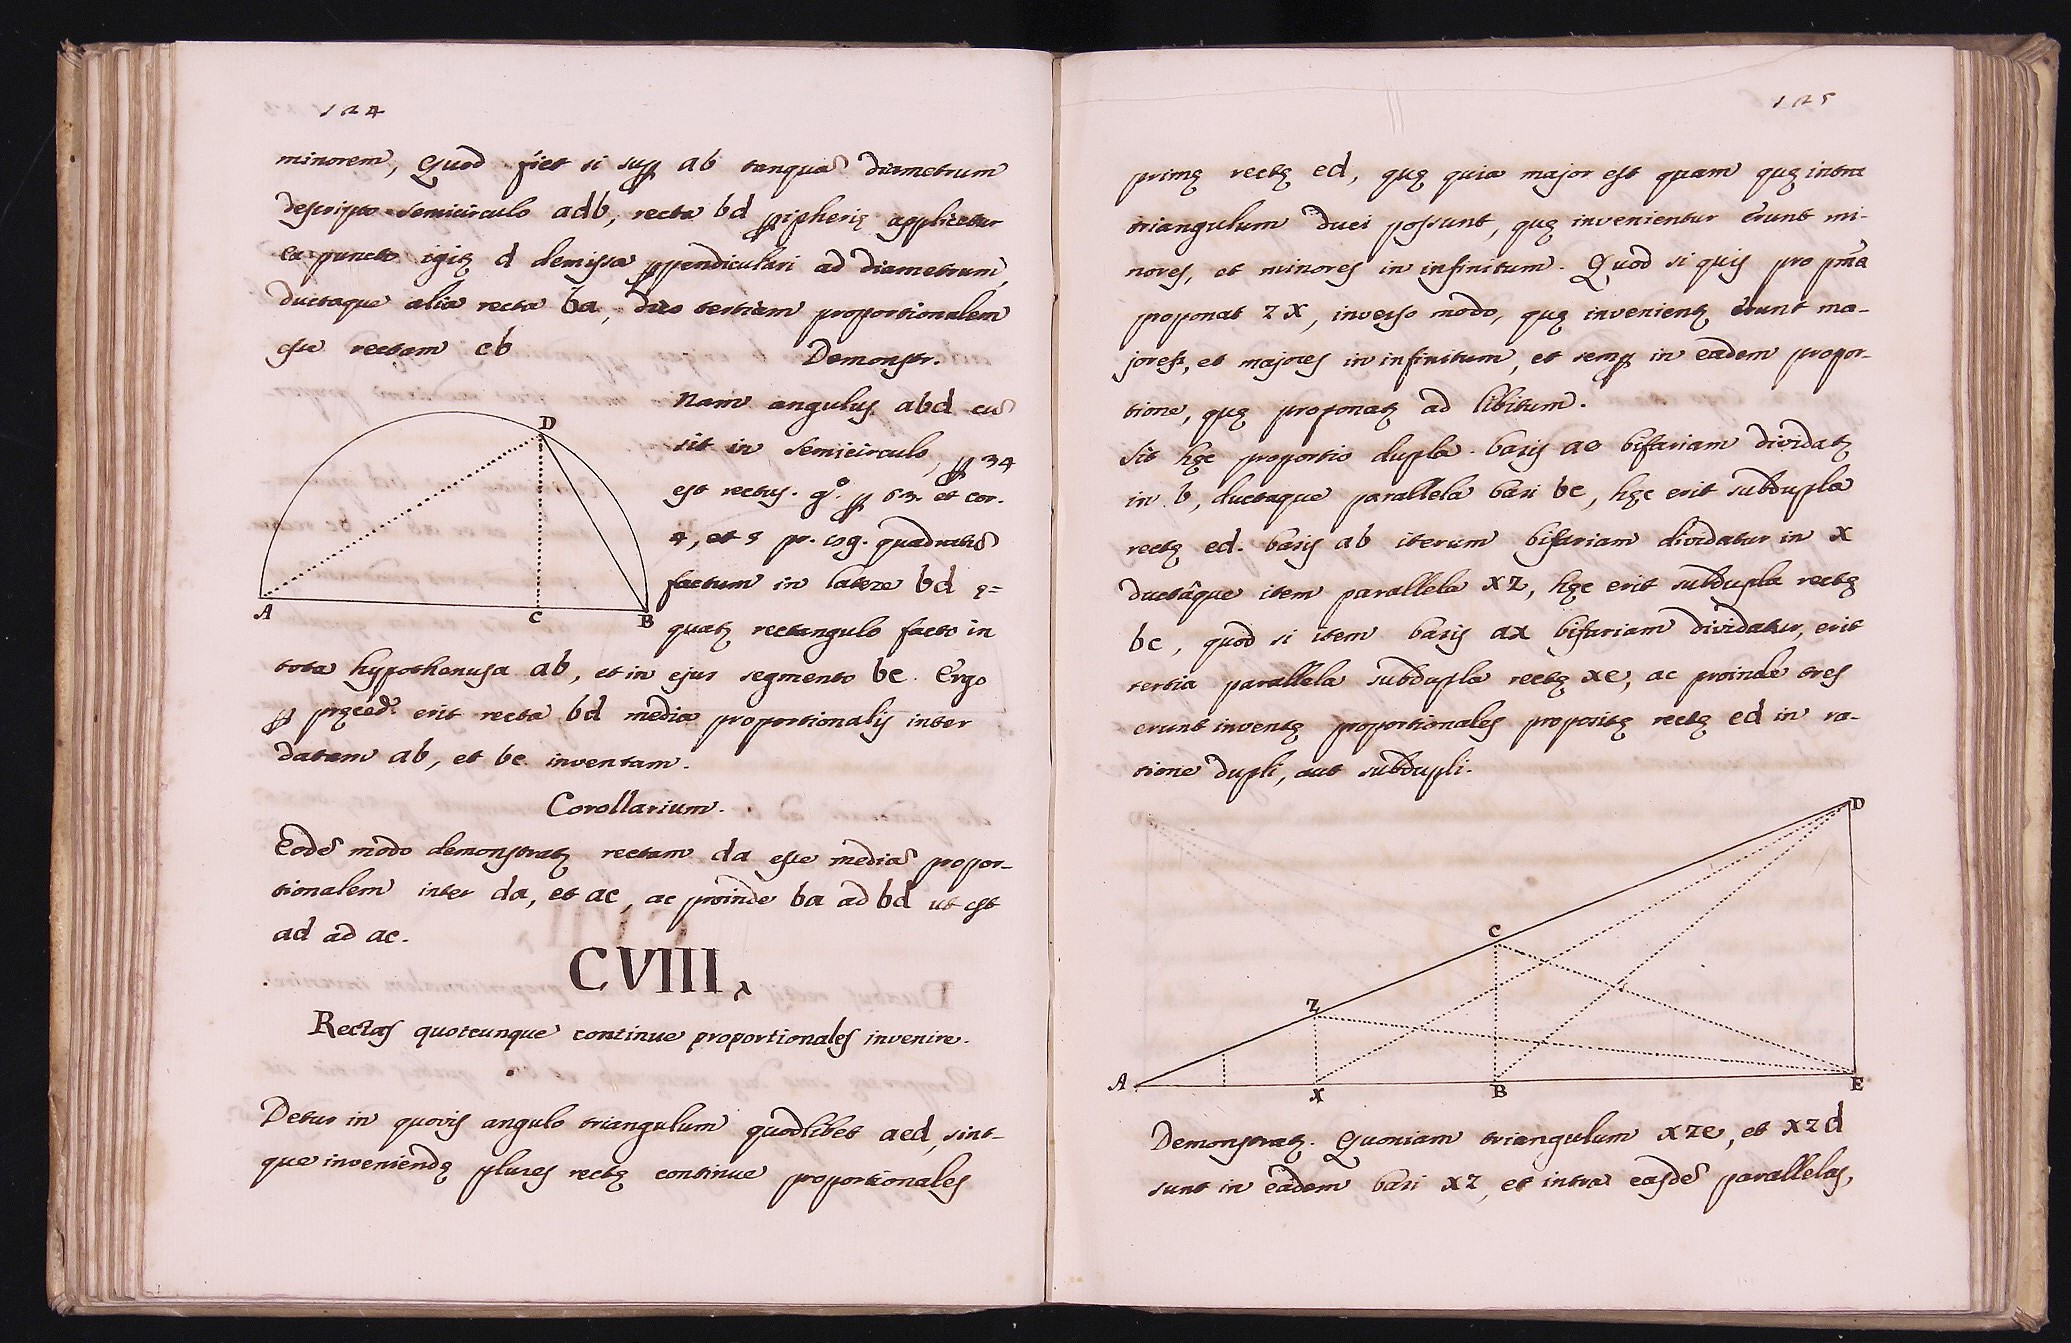 124
minorem, Quod fiet si supp ab tanquã diametrum
descripto semicirculo adb, recta bd ppipherię applicetur
ex puncto igitz d demissa pppendiculari ad diametrum,
ductaque alia recta ba, dico tertiam proportionalem
esse rectam cb
Demonstr.
Nam angulus abd cũ
sit in semicirculo, p 34
est rectus. gº. p 63. et cor.
4, et 5 pr. cog. quadratũ
factum in latere bd ę=
quatz rectangulo facto in
tota hypothenusa ab, et in ejus segmento bc. Ergo
p pręced. erit recta bd media proportionalis inter
datam ab, et bc inventam.
D
A
C
B
Corollarium.
Eodẽ modo demonstratz rectam da esse mediã propor-
tionalem inter da, et ac, ac proinde ba ad bd ut est
ad ad ac.
CVIII,
Rectas quotcunque continue proportionales invenire.
Detur in quovis angulo triangulum quodlibet aed, sint-
que inveniendę plures rectę continue proportionales
125
primę rectę ed, quę quia major est quam quę intra
triangulum duci possunt, quę invenientur erunt mi-
nores, et minores in infinitum. Quod si quis pro pmã
proponat zx, inverso modo, quę invenientz erunt ma-
jores, et majores in infinitum, et semp in eadem propor-
tione, quę proponatz ad libitum.
Sit hęc proportio dupla. basis ae bifariam dividatz
in b, ductaque parallela basi bc, hęc erit subdupla
rectę ed. basis ab iterum bifariam dividatur in x
ductâque item parallela xz, hęc erit subdupla rectę
bc, quod si item basis ax bifariam dividatur, erit
tertia parallela subdupla rectę xe, ac proinde tres
erunt inventę proportionales propositę rectę ed in ra-
tione dupli, aut subdupli.
D
C
Z
A
X
B
E
Demonstratz. Quoniam triangulum xze, et xzd
sunt in eadem basi xz, et intra easdẽ parallelas,